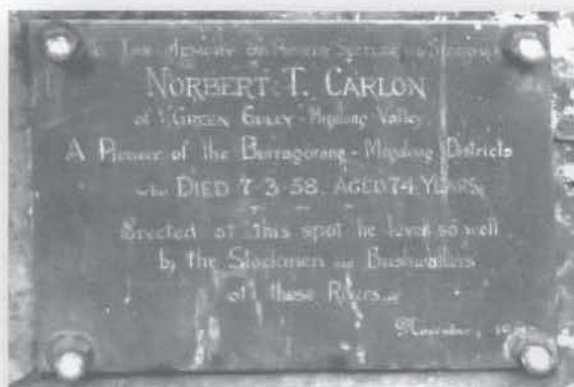 In Memory of Pioneer Settler
NORBERT. T. CARLON
of "GREEN GULLY - Megalong Valley.
A Pioneer of the Burragorang - Megalong Districts
who DIED 7-3-58. AGED 74 YEARS.
Erected at this spot he loved so well
by the Stockmen and Bushwalkers
of these Rivers
November,